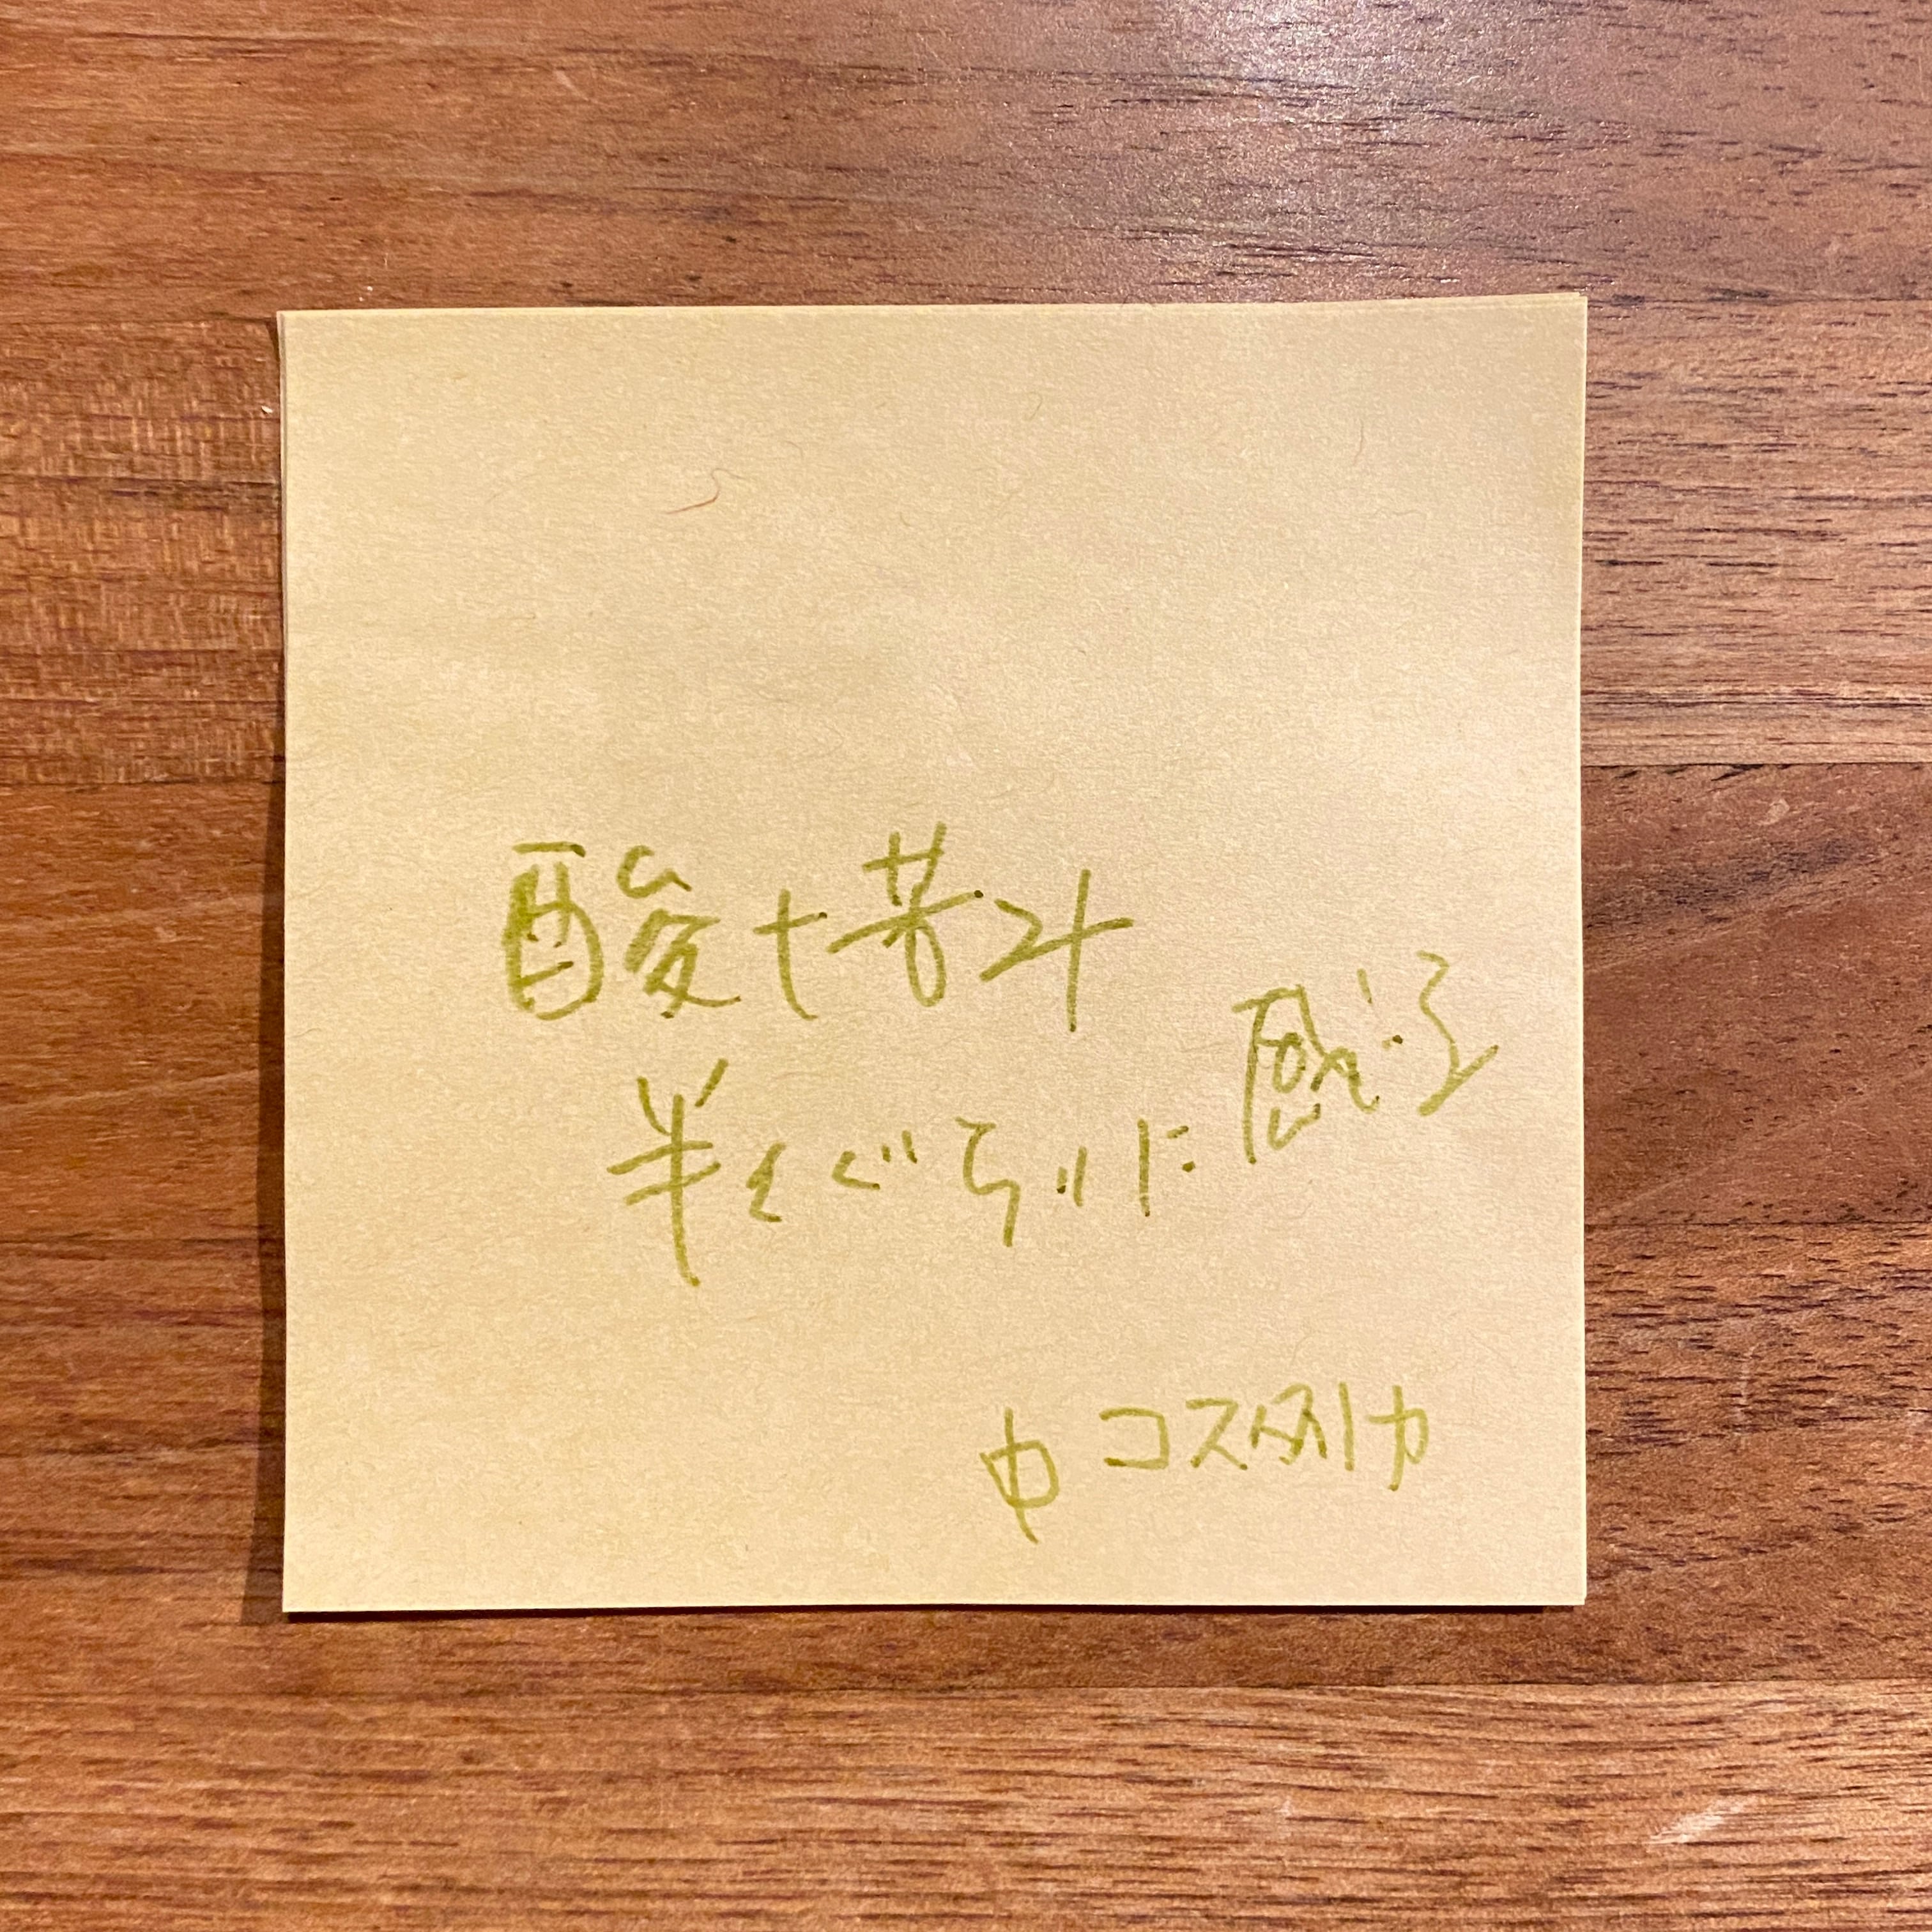 酸+苦み
半々ぐらいに感じる
中コスタリカ